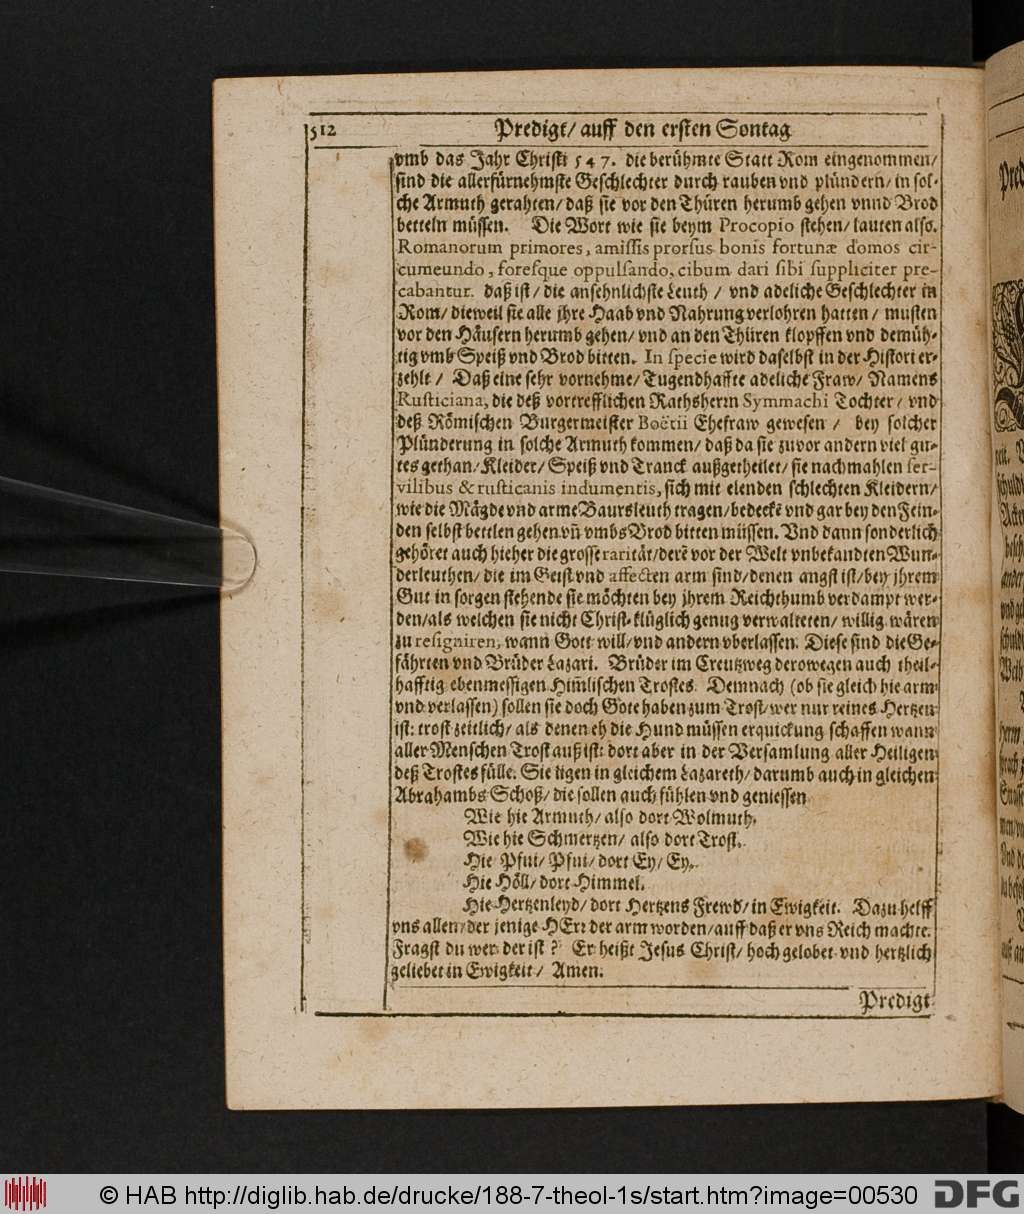 512 Predigt/ auff den ersten Sontag
vmb das Jahr Christi 547. die berühmte Statt Rom eingenommen/
sind die allerfürnehmste Geschlechter durch rauben vnd plündern/ in sol-
che Armuth gerahten/ daß sie vor den Thüren herumb gehen vnnd Brod
betteln müssen. Die Wort wie sie beym Procopio stehen/ lauten also.
Romanorum primores, amissis prorsus bonis fortunæ domos cir-
cumeundo, foresque oppulsando, cibum dari sibi suppliciter pre-
cabantur. daß ist/ die ansehnlichste Leuth/ vnd adeliche Geschlechter in
Rom/ dieweil sie alle jhre Haab vnd Nahrung verlohren hatten/ musten
vor den Häusern herumb gehen/ vnd an den Thüren klopffen vnd demüh-
tig vmb Speiß vnd Brod bitten. In specie wird daselbst in der Histori er-
zehlt/ Daß eine sehr vornehme/ Tugendhaffte adeliche Fraw/ Namens
Rusticiana, die deß vortrefflichen Rathsherrn Symmachi Tochter/ vnd
deß Römischen Burgermeister Boëtii Ehefraw gewesen/ bey solcher
Plünderung in solche Armuth kommen/ daß da sie zuvor andern viel gu-
tes gethan/ Kleider/ Speiß vnd Tranck außgetheilet/ sie nachmahlen ser-
vilibus & rusticanis indumentis, sich mit elenden schlechten Kleidern/
wie die Mägde vnd arme Baursleuth tragen/ bedeckē vnd gar bey den Fein-
den selbst bettlen gehen vñ vmbs Brod bitten müssen. Vnd dann sonderlich
gehöret auch hieher die grosse rarität/ derē vor der Welt vnbekandten Wun-
derleuthen/ die im Geist vnd affecten arm sind/ denen angst ist/ bey jhrem
Gut in sorgen stehende sie möchten bey jhrem Reichthumb verdampt wer-
den/ als welchen sie nicht Christ-klüglich genug verwalteten/ willig wären
zu resigniren, wann Gott will/ vnd andern vberlassen. Diese sind die Ge-
fährten vnd Brüder Lazari. Brüder im Creutzweg derowegen auch theil-
hafftig ebenmessigen Him̄lischen Trostes. Demnach (ob sie gleich hie arm
vnd verlassen) sollen sie doch Gott haben zum Trost/ wer nur reines Hertzen
ist: trost zeitlich/ als denen eh die Hund müssen erquickung schaffen wann
aller Menschen Trost auß ist: dort aber in der Versamlung aller Heiligen
deß Trostes fülle. Sie ligen in gleichem Lazareth/ darumb auch in gleichen
Abrahambs Schoß/ die sollen auch fühlen vnd geniessen
Wie hie Armuth/ also dort Wolmuth.
Wie hie Schmertzen/ also dort Trost.
Hie Pfui/ Pfui/ dort Ey/ Ey.
Hie Höll/ dort Himmel.
Hie Hertzenleyd/ dort Hertzens Frewd/ in Ewigkeit. Dazu helff
vns allen/ der jenige HErr der arm worden/ auff daß er vns Reich machte.
Fragst du wer der ist? Er heißt Jesus Christ/ hoch gelobet vnd hertzlich
geliebet in Ewigkeit/ Amen.
Predigt
© HAB http://diglib.hab.de/drucke/188-7-theol-1s/start.htm?image=00530 DFG